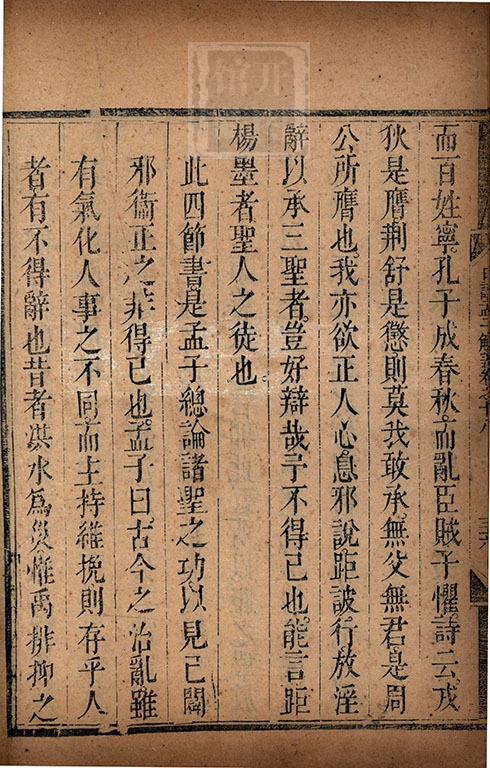 而百姓寧孔子成春秋而亂臣賊子懼詩云戎
狄是膺荆舒是懲則莫我敢承無父無君是周
公所膺也我亦欲正人心息邪說距詖行放淫
辭以承三聖者豈好辯哉予不得已也能言距
楊墨者聖人之徒也
此四節書是孟子總論諸聖之功以見已闢
邪衛正之非得已也孟子曰古今之治亂雖
有氣化人事之不同而主持維挽則存乎人
者有不得辭也昔者洪水為災惟禹排抑之